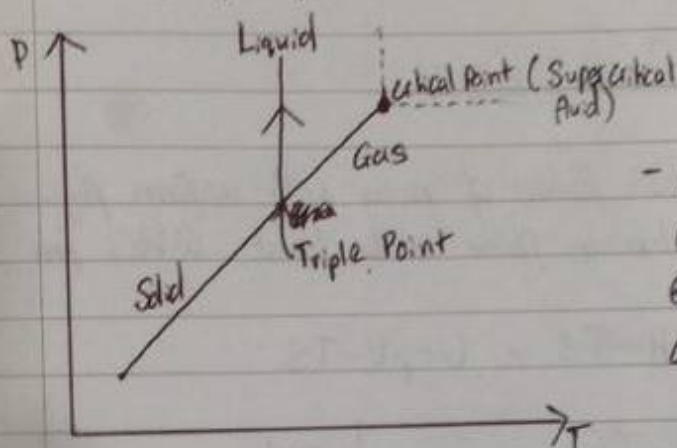 Liquid
P
Critical Point (Supercritical
fluid)
Gas
Triple Point
Solid
T